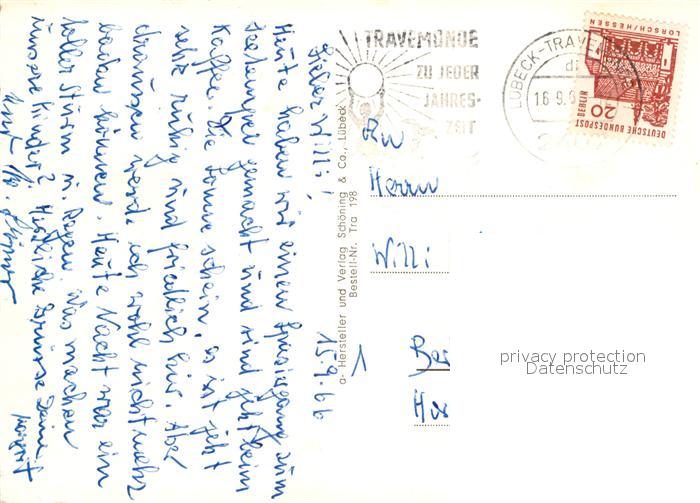 15.9.66
Lieber Willi!
Heute haben wir einen Spaziergang zum
Seetempel gemacht und sind jetzt beim
Kaffee. Die Sonne schein, es ist jetzt
sehr ruhig und friedlich hier. Aber
draussen werde ich wohl nicht mehr
baden können. Heute Nacht war ein
toller Sturm u. Regen. Was machen
unsere Kinder? Herzliche Grüsse Deine
a- Hersteller und Verlag Schöning & Co., Lübeck
Bestell-Nr. Tra 198
TRAVEMÜNDE
ZU JEDER
JAHRES-
ZEIT
LÜBECK-TRAVEM
16.9.
LORSCH/HESSEN
DEUTSCHE BUNDESPOST
BERLIN
20
An
Herrn
Willi
1
Ber
privacy protection
Datenschutz